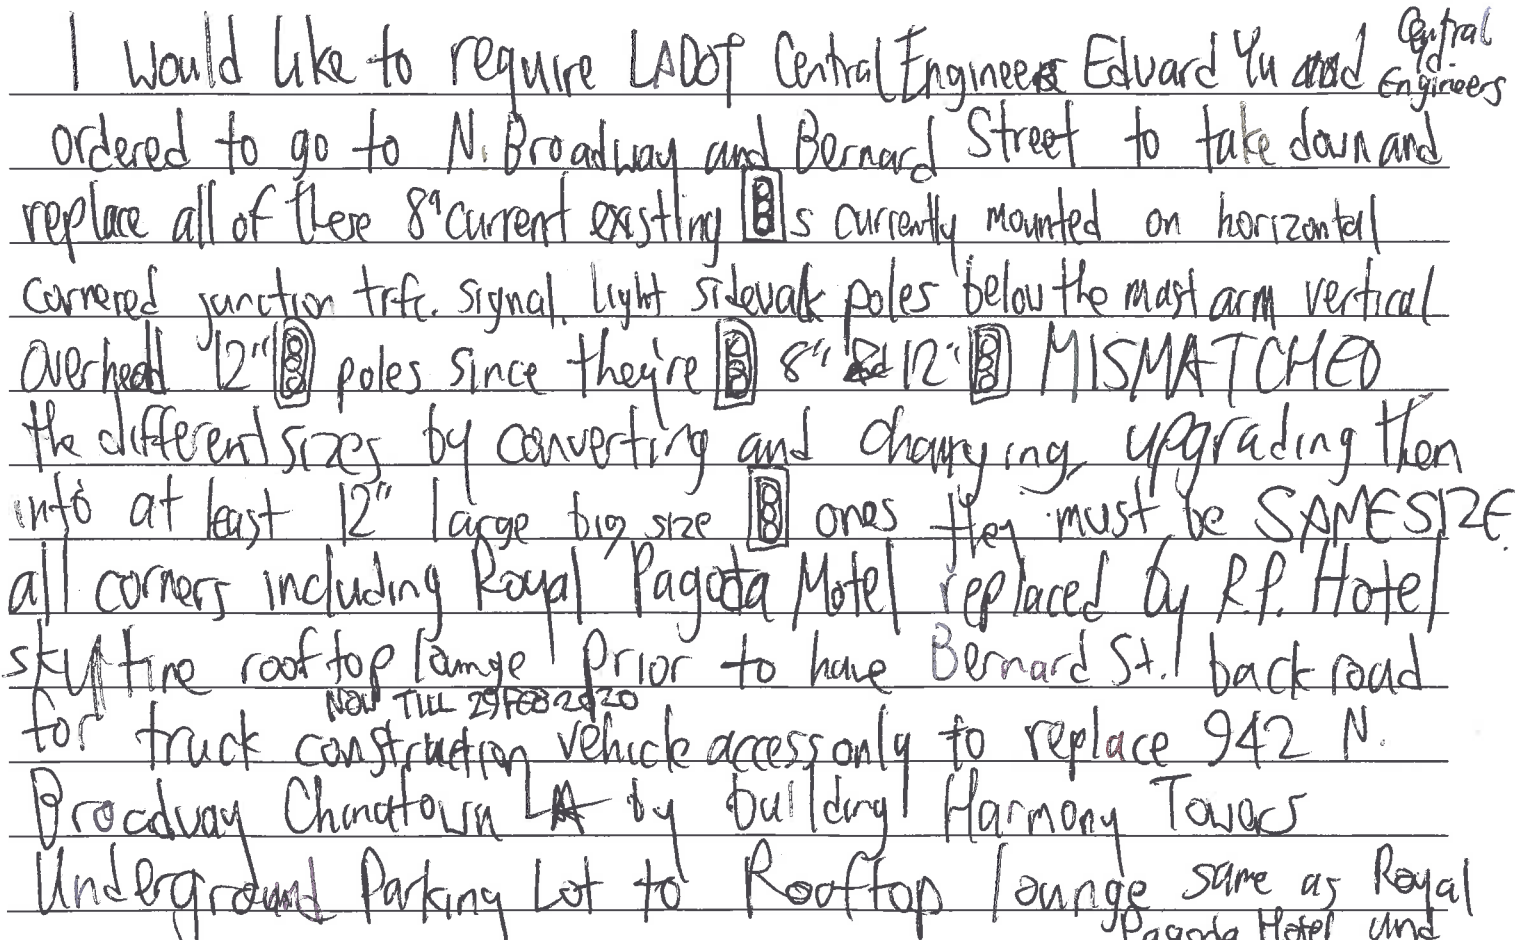 I would like to require LADOT Central Engineers Edward Yu and Central Engineers
ordered to go to N. Broadway and Bernard Street to take down and
replace all of these 8" current existing s currently mounted on horizontal
cornered junction trfc. signal. light sidewalk poles below the mast arm vertical
overhead 12" poles since they're 8" & 12" MISMATCHED
the different sizes by converting and changing, upgrading then
into at least 12" large big size ones they must be SAME SIZE.
all corners including Royal Pagoda Motel replaced by R.P. Hotel
rooftop lounge prior to have Bernard St. back road
NOW TILL 29 FEB 2020
for truck construction vehicle access only to replace 942 N.
Broadway Chinatown LA by building Harmony Towers
Underground Parking Lot to Rooftop lounge same as Royal
Pagoda Hotel and